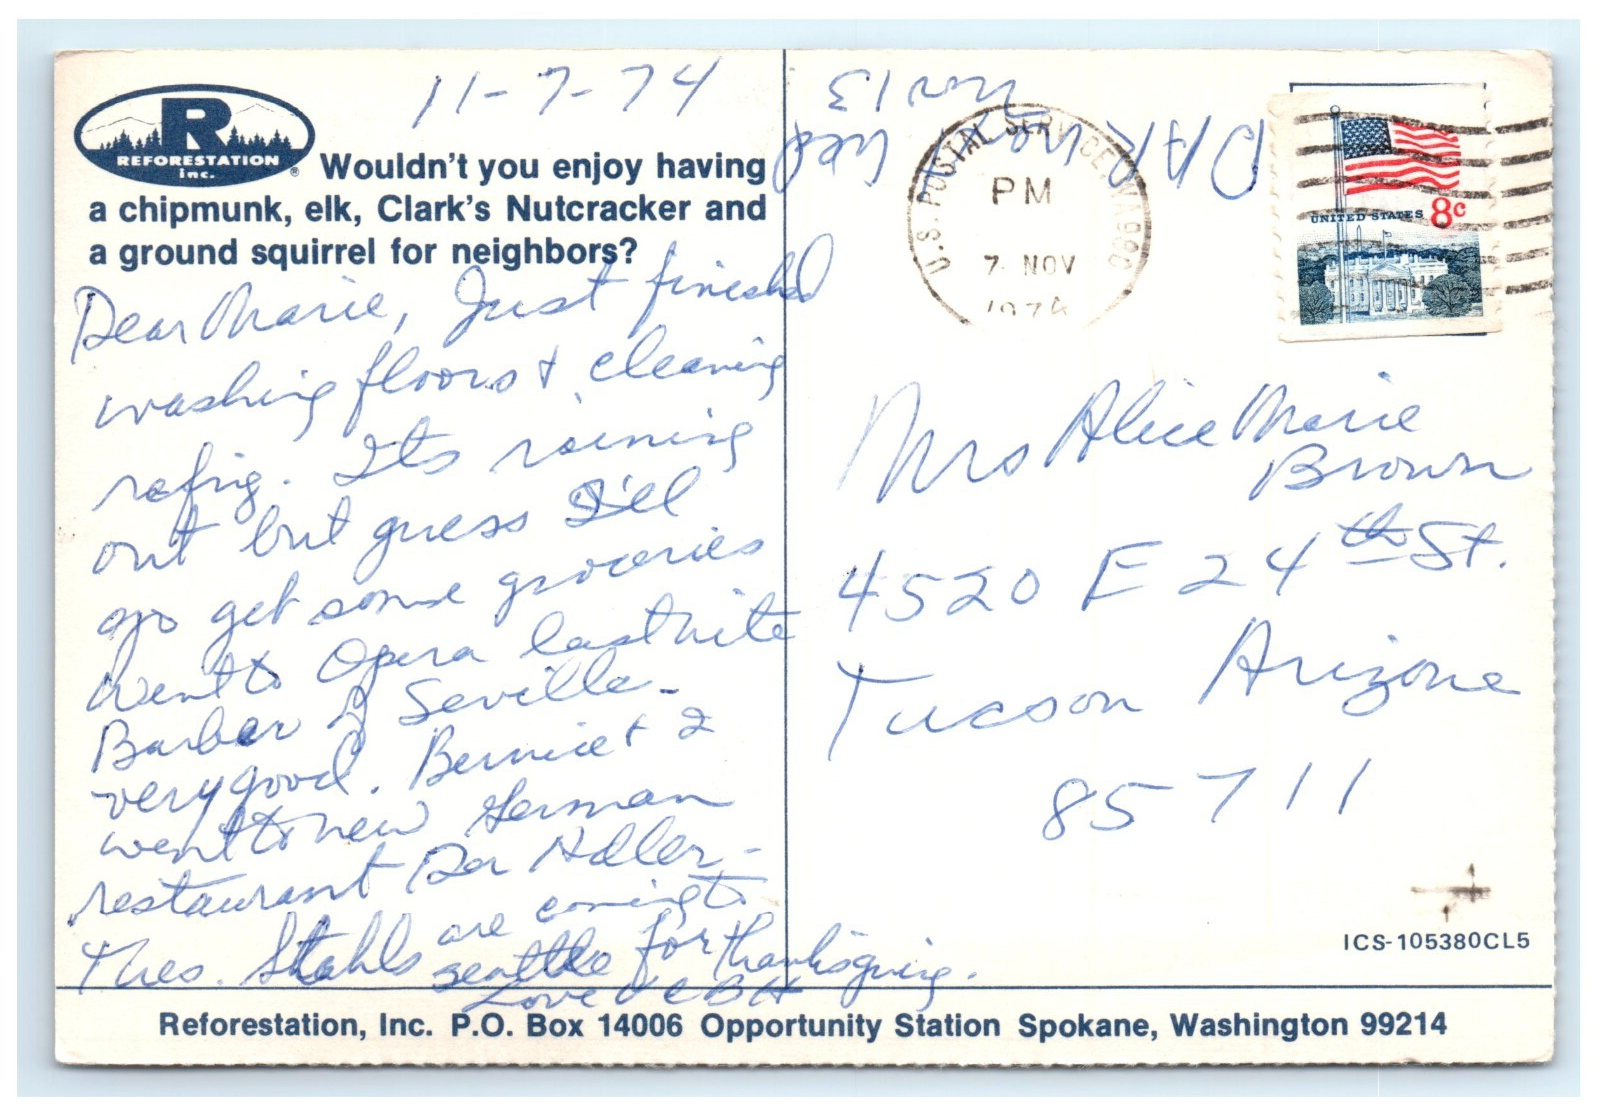 11-7-74
R
REFORESTATION
inc.
®
Wouldn't you enjoy having
a chipmunk, elk, Clark's Nutcracker and
a ground squirrel for neighbors?
Dear Marie, Just finished
washing floors & cleaning
refrig. Its raining
out but guess I'll
go get some groceries
Went to Opera last nite
Barber of Seville -
very good. Bernice & I
went to new German
restaurant Der Adler -
Thes. Stahls are coming to
seattle for thanksgiving.
Love
DAR Wed
Nov 13
U.S. POSTAL SERVICE WA 980
PM
7 NOV
1974
UNITED STATES 8c
Mrs Alice Marie
Brown
4520 E 24th St.
Tucson Arizona
85711
ICS-105380CL5
Reforestation, Inc. P.O. Box 14006 Opportunity Station Spokane, Washington 99214